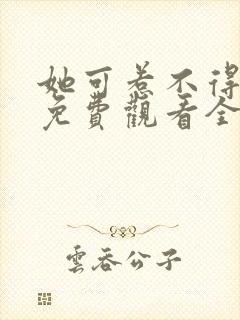 她可惹不得
免費觀看全
雲吞公子